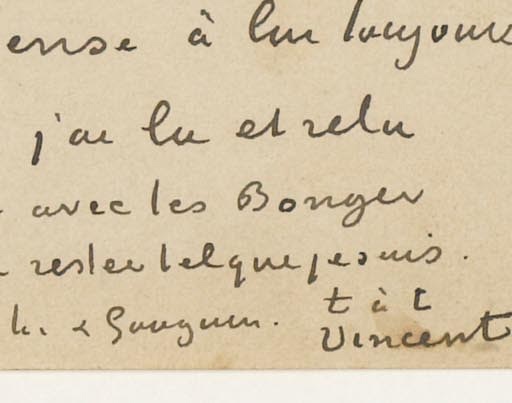 ense à lui toujours
j'ai lu et relu
avec les Bonger
rester tel que je suis.
h. & Gauguin. t à t
Vincent